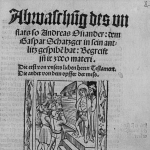 Abwaschung des vn
flats so Andreas Osiander: dem
Gaspar Schatzger in sein ant-
litz gespibē hat: Begreift
in ir zwo materi.
Die erst von vnsers lieben herrn Testament.
Die ander von dem opffer der mess.